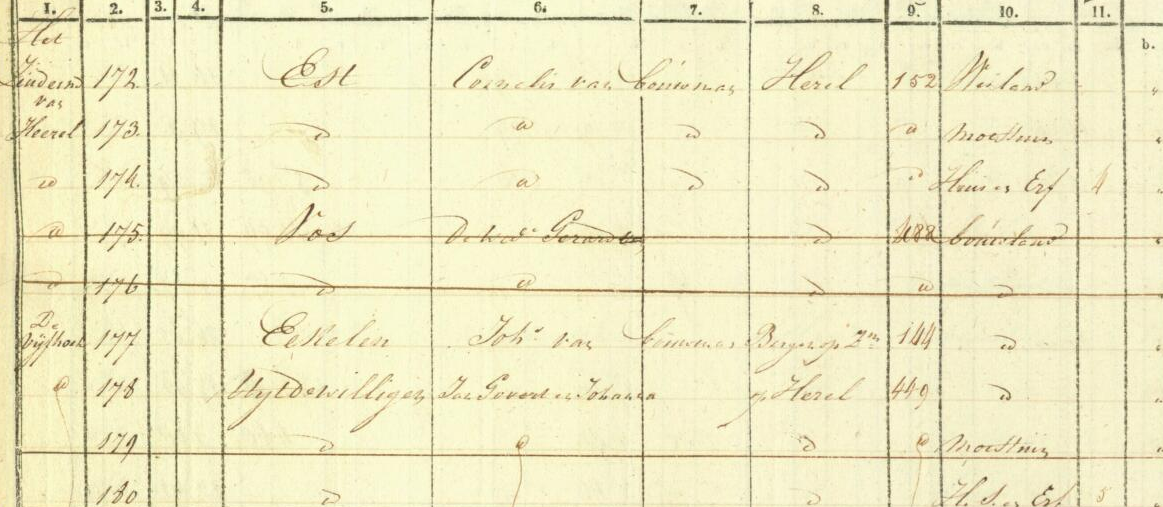 1. 2. 3. 4. 5. 6. 7. 8. 9. 10. 11.
Het
b.
172. Est Cornelis van bouwman Herel 152 Weiland
van
Heerel 173. d d d d d moestuin
d 174. d d d d d Huis en Erf 4
d 175. Vos De Wed.e Gerard d 488 bouwland
d 176 d d d d d
De
177 Eekelen Joh.s van bouwman Bergen op Z.m 144 d
d 178 Uytdewilligen Jan Govert en Johanna Herel 449 d
179 d d d d moestuin
180 d d H. S. en Erf 5